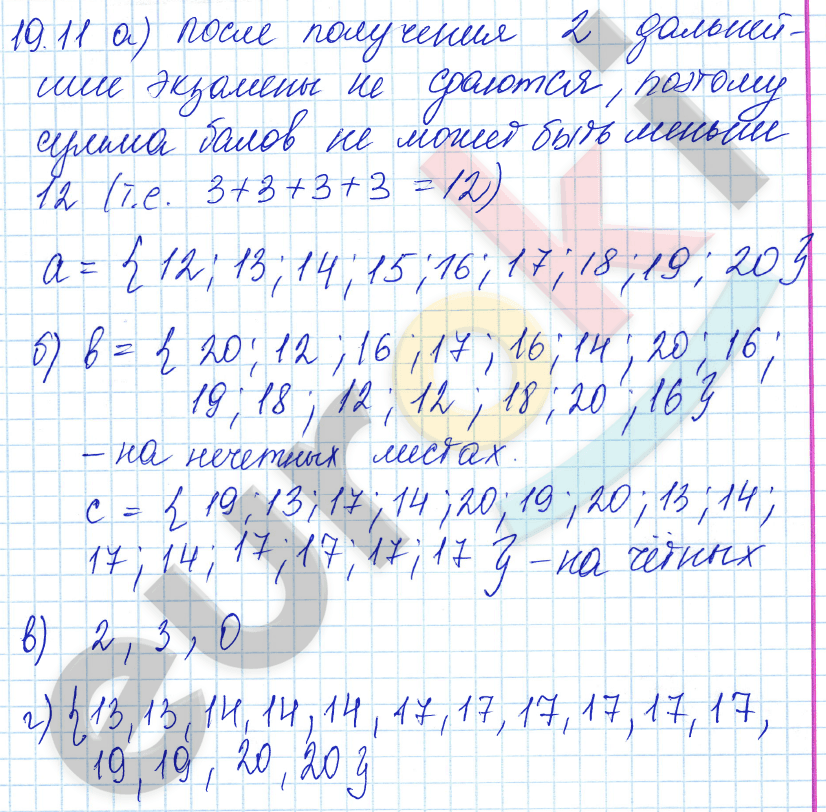 19.11 а) после получения 2 дальней-
шие экзамены не сдаются, поэтому
сумма балов не может быть меньше
12 (т.е. 3+3+3+3 = 12)
a = { 12; 13; 14; 15; 16; 17; 18; 19; 20 }
б) b = { 20; 12; 16; 17; 16; 14; 20; 16;
19; 18; 12; 12; 18; 20; 16 }
– на нечетных листах.
c = { 19; 13; 17; 14; 20; 19; 20; 13; 14;
17; 14; 17; 17; 17; 17 } – на чётных
в) 2, 3, 0
г) { 13, 13, 14, 14, 14, 17, 17, 17, 17, 17, 17,
19, 19, 20, 20 }
euroki